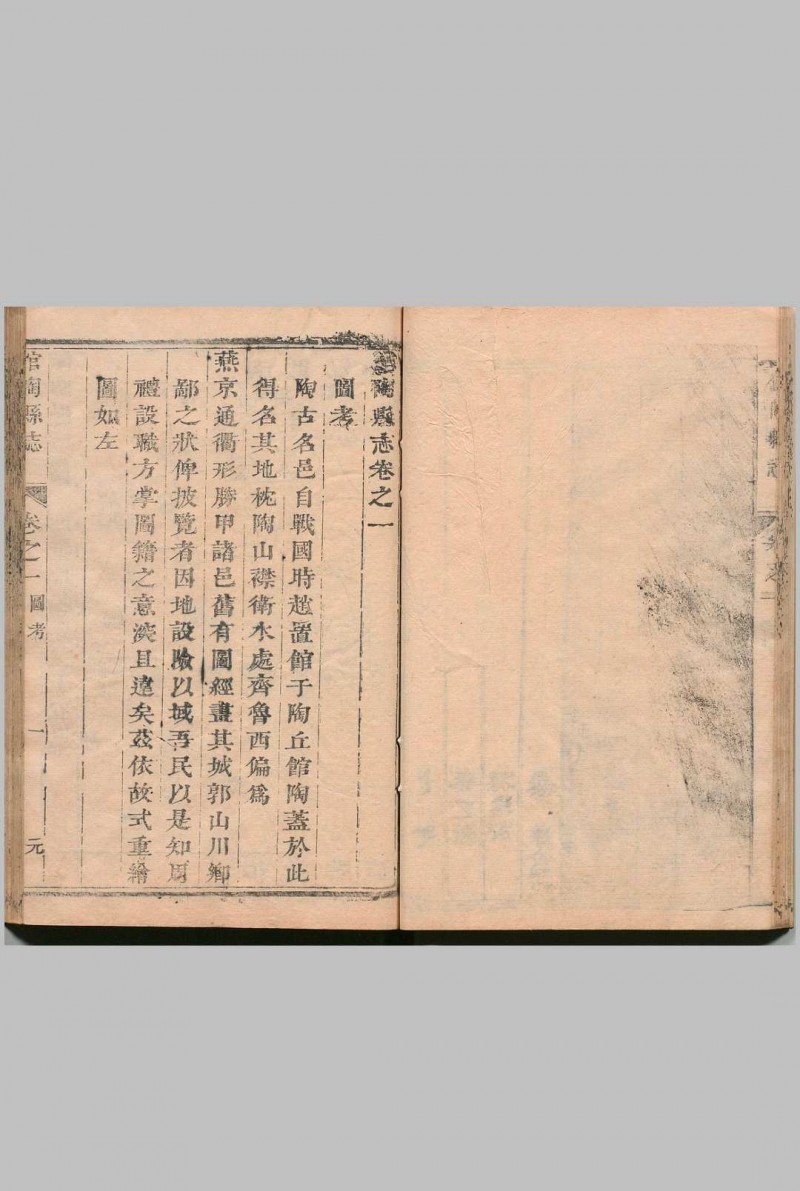 館陶縣志卷之一
圖考
陶古名邑自戰國時趙置館于陶丘館陶蓋於此
得名其地枕陶山襟衛水處齊魯西偏爲
燕京通衢形勝甲諸邑舊有圖經畫其城郭山川鄉
鄙之狀俾披覽者因地設險以城吾民以是知周
禮設職方掌圖籍之意深且遠矣茲依故式重繪
圖如左
館陶縣志 卷之一 圖考 一 元